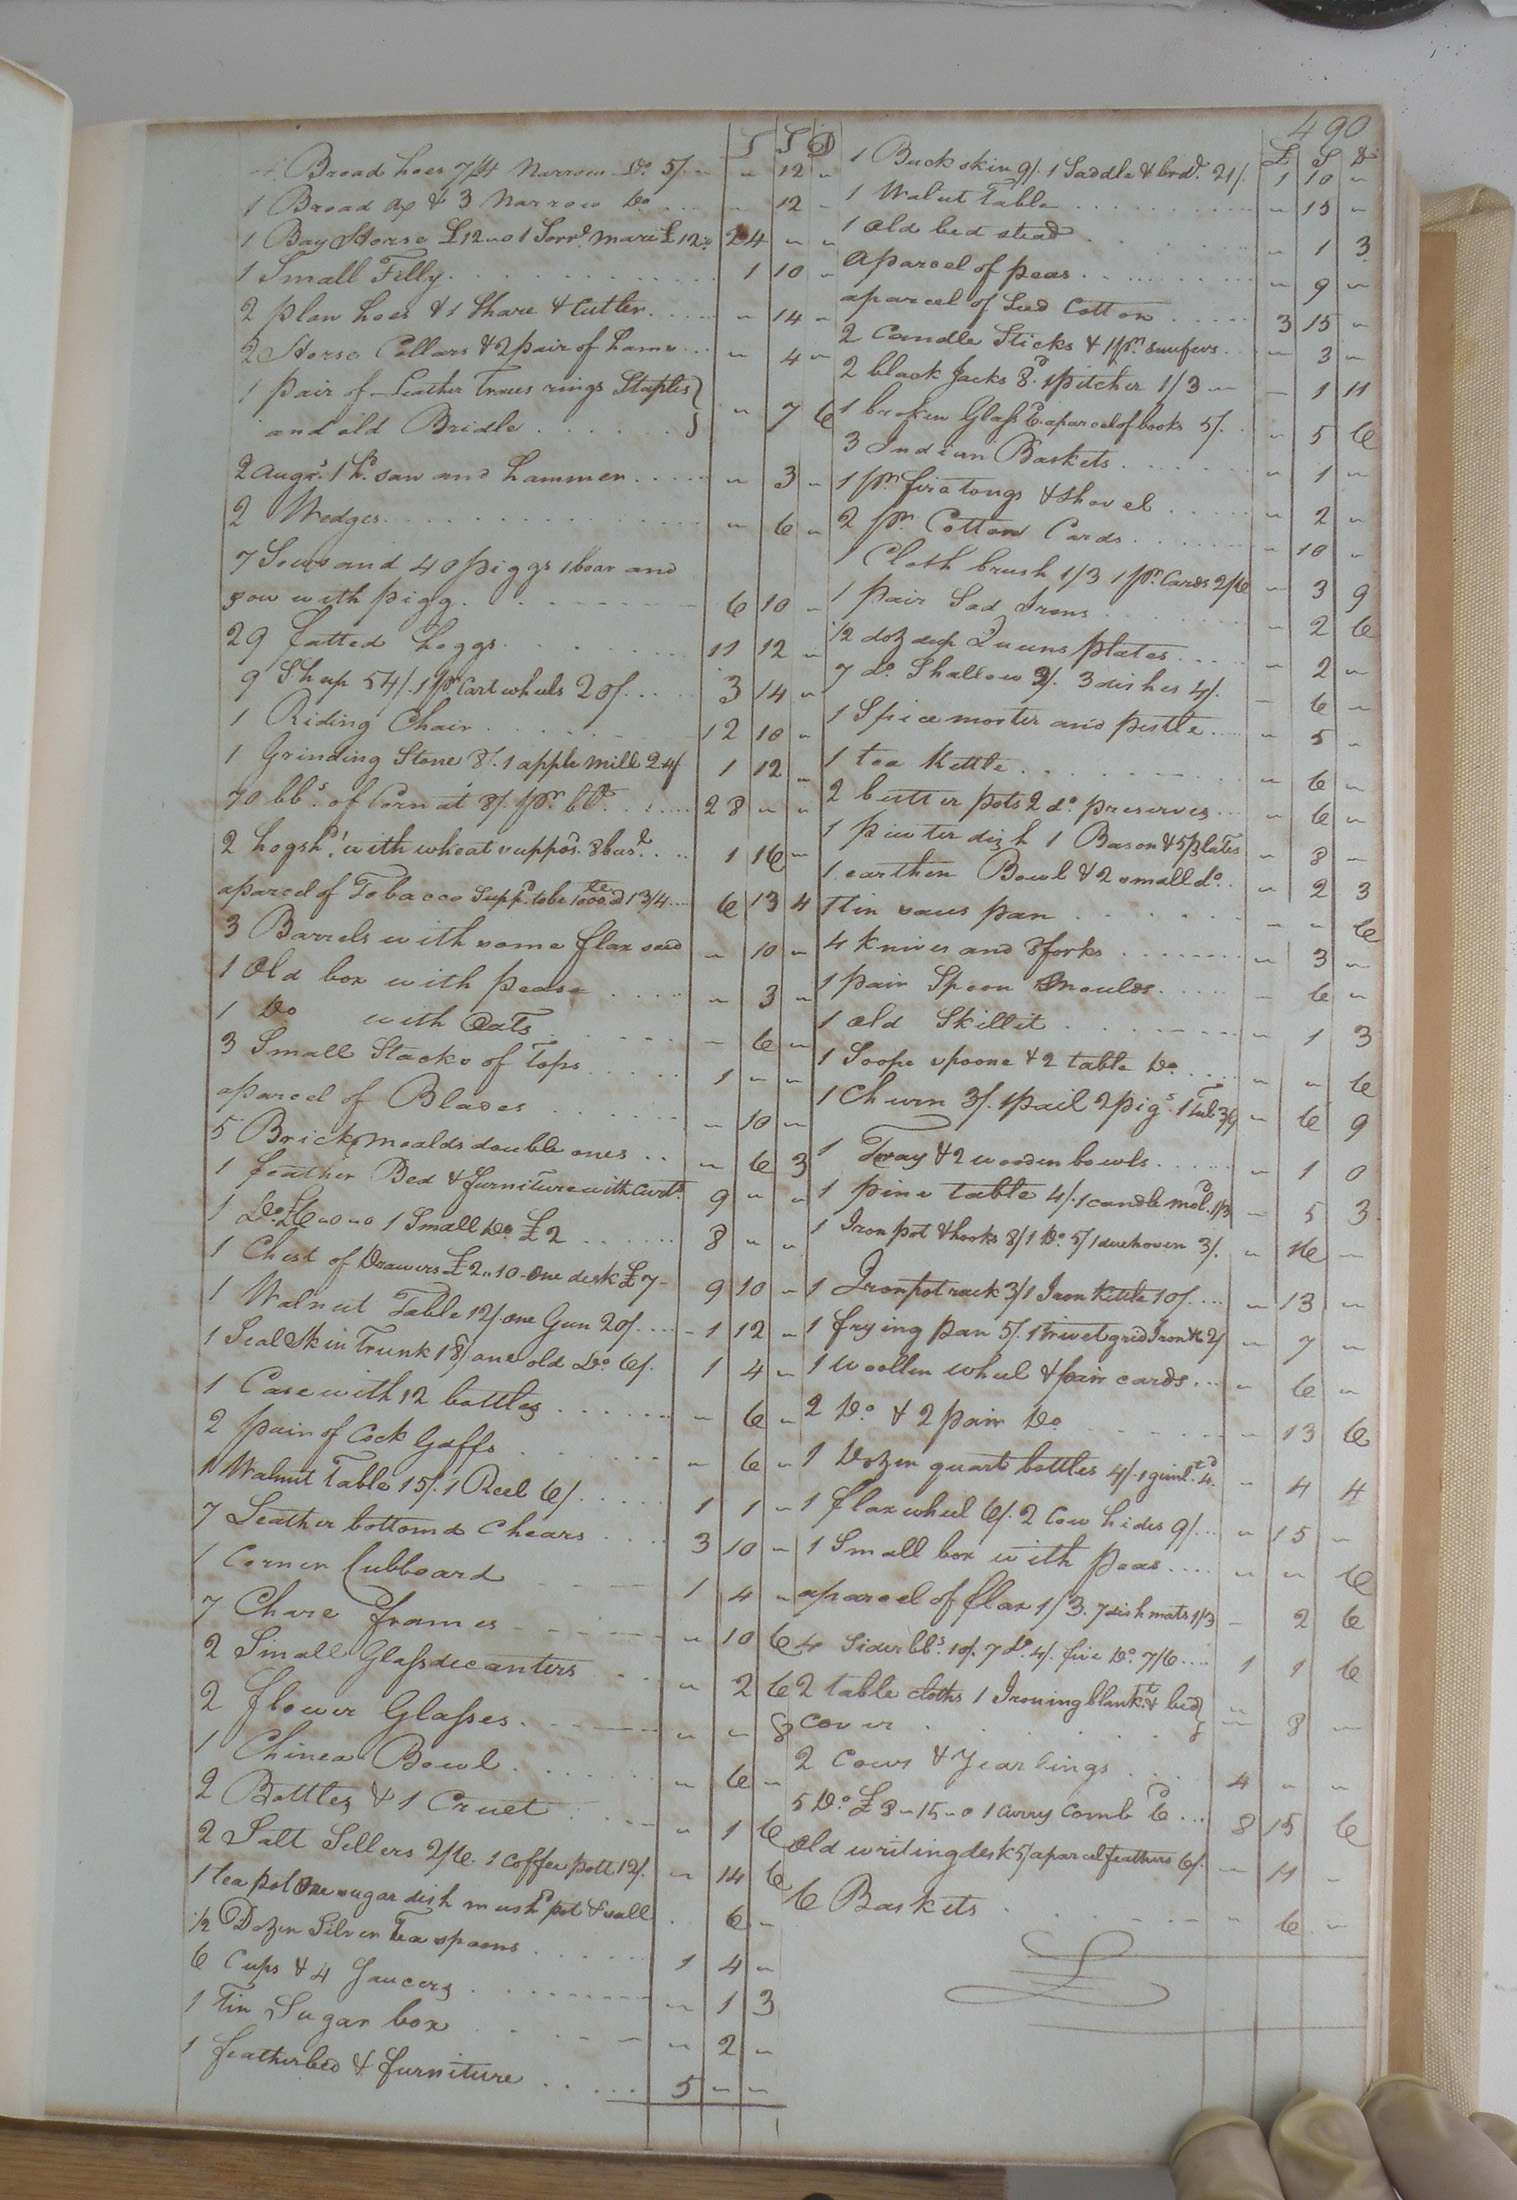 490
£ S D
4 Broad hoes 7/ 4 Narrow Do. 5/. " 12 "
1 Broad ax & 3 Narrow Do ... " 12 "
1 Bay Horse £12"0 1 Sorrl. Mare £12"0 24 " "
1 Small Filly . . . 1 10 "
2 plow hoes & 1 Share & Cutler . . . " 14 "
2 Horse Collars & 2 pair of hams . . . " 4 "
1 pair of Leather Traces rings Staples }
and old Bridle . . . } " 7 6
2 augrs. 1 hd. saw and hammer . . . " 3 "
2 Wedges . . . " 6 "
7 Sows and 40 piggs 1 boar and
sow with pigg . . . 6 10 "
29 fatted hoggs . . . 11 12 "
9 Sheep 54/. 1 pr. Cart wheels 20/. . . 3 14 "
1 Riding Chair . . . 12 10 "
1 Grinding Stone 8/. 1 apple mill 24/ 1 12 "
70 bbs. of Corn at 8/. pr. bb. . . . 28 " "
2 hogshd. with wheat suppos'd. 8 bus. . . 1 16 "
aparcel of Tobacco Suppd. to be 1000 @ 13/4 . . . 6 13 4
3 Barrels with some flax seed " 10 "
1 Old box with pease . . . " 3 "
1 Do with Oats . . . " 6 "
3 Small Stacks of Tops . . . 1 " "
aparcel of Blades . . . " 10 "
5 Brick moalds double ones . . " 6 3
1 feather Bed & furniture with curts. 9 " "
1 Do. £6"0"0 1 Small Do £2 . . . 8 " "
1 Chest of Drawers £2"10 - One desk £7 - 9 10 "
1 Walnut Table 12/ one Gun 20/. . . . 1 12 "
1 Seal Skin Trunk 18/ one old Do 6/. 1 4 "
1 Case with 12 bottles . . . " 6 "
2 pair of Cock Gaffs . . . " 6 "
1 Walnut Table 15/. 1 Reel 6/. . . . 1 1 "
7 Leather bottomd Chears . . . 3 10 "
1 Corner Cubboard . . . 1 4 "
7 Chare frames . . . " 10 6
2 Small Glass decanters . . . " 2 6
2 flower Glasses . . . " " 8
1 Chinea Bowl . . . " 6 "
2 Bottles & 1 Cruet . . . " 1 6
2 Salt Sellers 2/6. 1 Coffee pott 12/. " 14 6
1 tea pot One sugar dish musd. pot & sall . 6 "
1/2 Dozen Silver Tea spoons . . . 1 4 "
6 Cups & 4 Saucers . . . " 1 3
1 Tin Sugar box . . . " 2 "
1 featherbed & furniture . . . 5 " "
£ S D
1 Buckskin 9/. 1 Saddle & brd. 21/. 1 10 "
1 Walnut Table . . . " 15 "
1 Old bed stead . . . " 1 3
Aparcel of peas . . . " 9 "
aparcel of Seed Cotton . . . 3 15 "
2 Candle Sticks & 1 pr. snufers . . " 3 "
2 black Jacks 8d. 1 pitcher 1/3 " " 1 11
1 broken Glass 6d. aparcel of books 5/. . " 5 6
3 Indian Baskets . . . " 1 "
1 pr. fire tongs & Shovel . . . " 2 "
2 pr. Cotton Cards . . . " 10 "
1 Cloth brush 1/3 1 pr. Cards 2/6 " 3 9
1 pair Sad Irons . . . " 2 6
1/2 doz deep Queens plates . . . " 2 "
7 do. Shallow 2/. 3 dishes 4/. " 6 "
1 Spice morter and pestle . . . " 5 "
1 tea Kettle . . . " 6 "
2 butter pots 2 do. preserves . . . " 6 "
1 pewter dish 1 Bason & 5 plates " 8 "
1 earthen Bowl & 2 small do. . " 2 3
1 tin saus pan . . . " " 6
4 knives and 8 forks . . . " 3 "
1 pair Spoon Moulds . . . " 6 "
1 old Skillit . . . " 1 3
1 Soope spoone & 2 table Do . . . " " 6
1 Churn 3/. 1 pail 2 pigs. 1 Tub 3/9 " 6 9
1 Tray & 2 wooden bowls . . . " 1 0
1 pine table 4/. 1 candle mold. 1/3 " 5 3
1 Iron pot & hooks 8/ 1 Do. 5/ 1 duch oven 3/. " 16 "
1 Iron pot rack 3/ 1 Iron Kittle 10/. . . . " 13 "
1 frying pan 5/. 1 trivet grid Iron &c 2/ " 7 "
1 woollen wheel & pair cards . . . " 6 "
2 Do. & 2 pair Do . . . " 13 6
1 Dozen quart bottles 4/. 1 gimlt. 4d. " 4 4
1 flax wheel 6/. 2 Cow hides 9/. . . " 15 "
1 Small box with peas . . . " " 6
aparcel of flax 1/3. 7 dish mats 1/3 " 2 6
4 Sider bbs. 10/. 7 Do. 4/. five Do. 7/6 . . . 1 1 6
2 table cloths 1 Ironing blankt. & bed }
cover . . . } " 8 "
2 Cows & Yearlings . . . 4 " "
5 Do. £8"15"0 1 Curry Comb 6d. . . 8 15 6
Old writing desk 5/ aparcel feathers 6/. " 11 "
6 Baskets . . . " 6 "
£